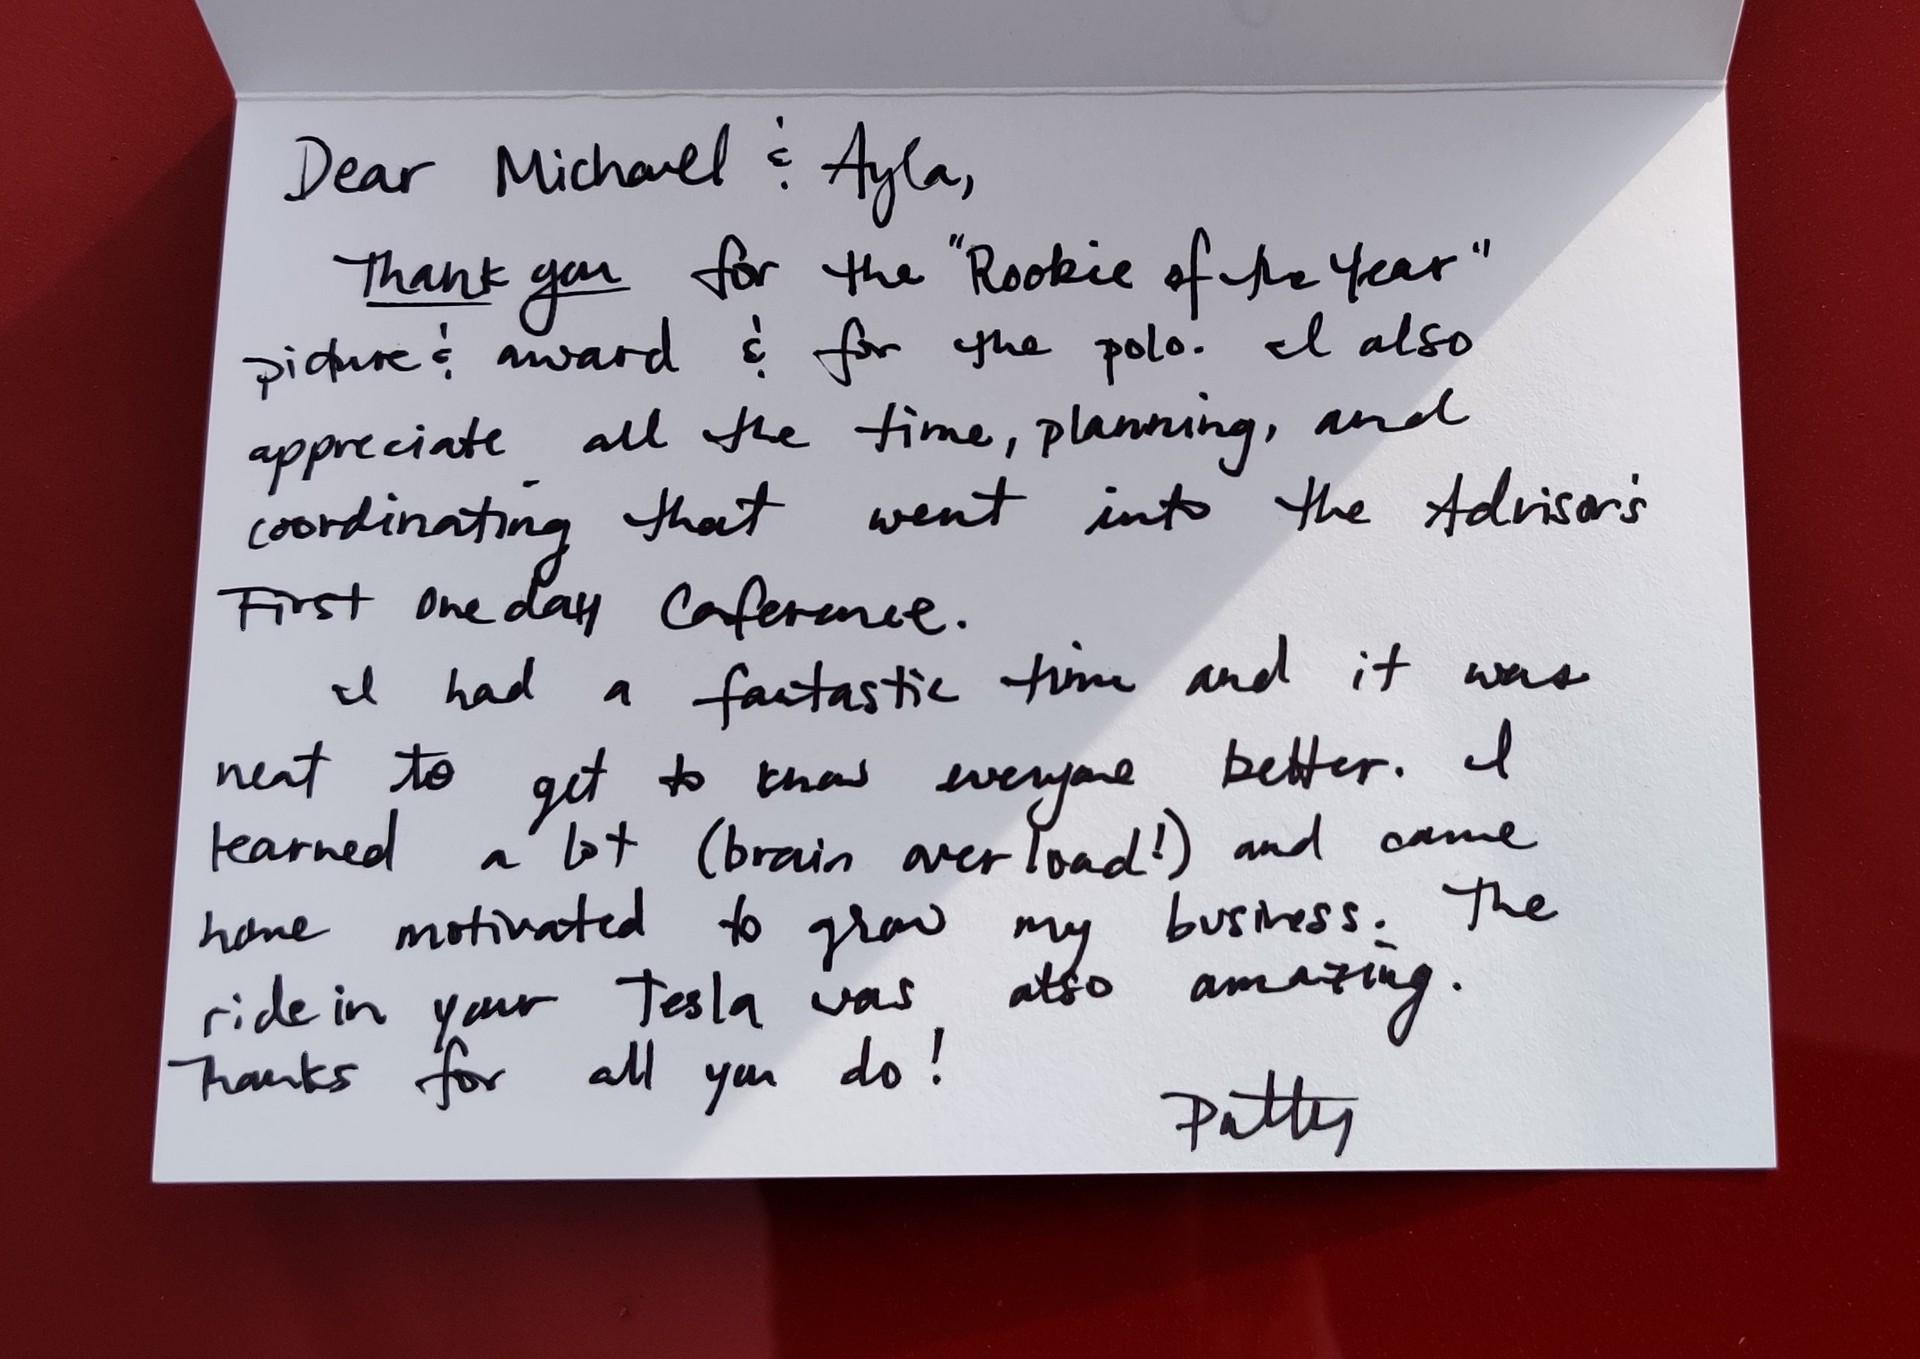 Dear Michael & Ayla,
Thank you for the "Rookie of the Year"
picture & award & for the polo. I also
appreciate all the time, planning, and
coordinating that went into the Advisor's
First One day Conference.
I had a fantastic time and it was
neat to get to know everyone better. I
learned a lot (brain over load!) and came
home motivated to grow my business. The
ride in your Tesla was also amazing.
Thanks for all you do!
Patty